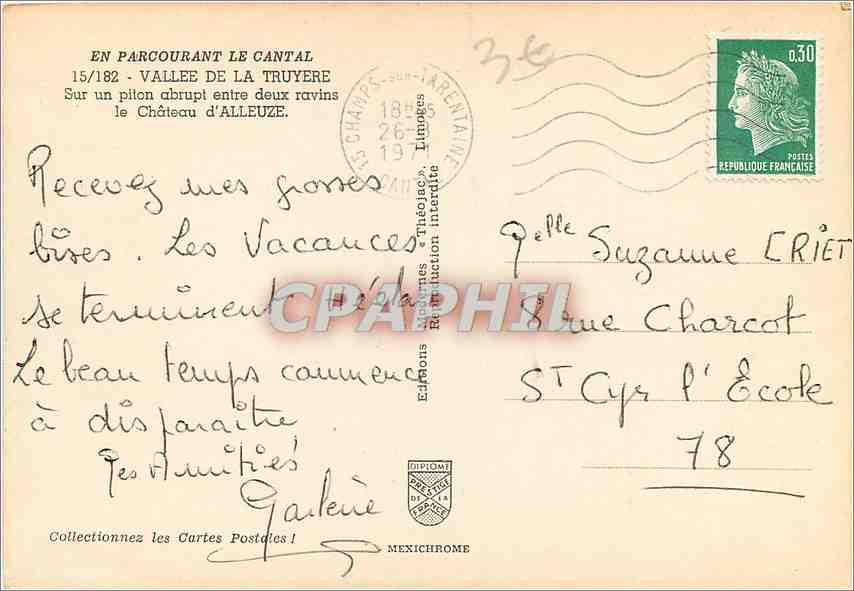 EN PARCOURANT LE CANTAL
15/182 - VALLEE DE LA TRUYERE
Sur un piton abrupt entre deux ravins
le Château d'ALLEUZE.
Recevez mes grosses
bises. Les Vacances
se terminent Hélas
Le beau temps commence
à disparaître.
Mes Amitiés
Collectionnez les Cartes Postales !
Editions Modernes « Théojac », Limoges
Reproduction interdite
DIPLOME
PRESTIGE
DE LA
FRANCE
MEXICHROME
3€
15 CHAMPS-sur-TARENTAINE
18H
26-
197
CANTAL
0,30
POSTES
REPUBLIQUE FRANÇAISE
Melle Suzanne CRIET
8 rue Charcot
ST Cyr l'École
78
CPAPHIL